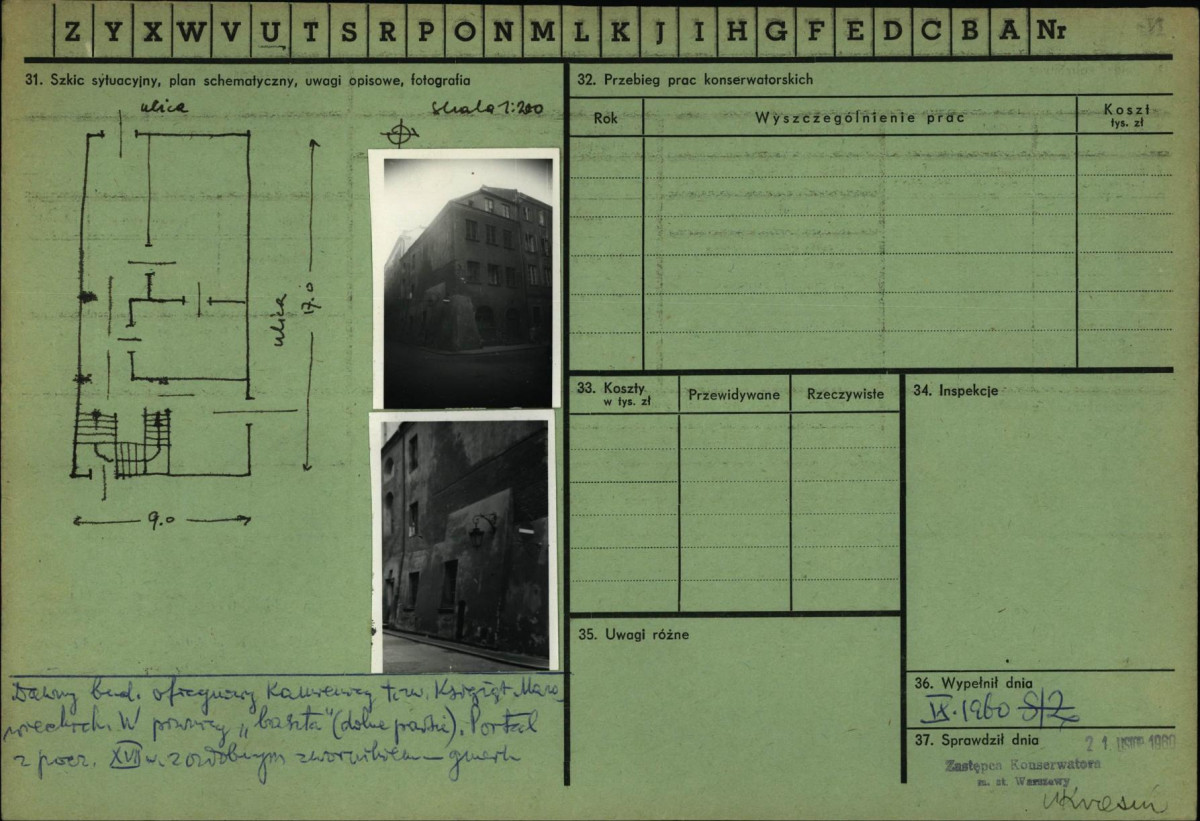 Z Y X W V U T S R P O N M L K J I H G F E D C B A Nr
31. Szkic sytuacyjny, plan schematyczny, uwagi opisowe, fotografia
ulica
skala 1:200
ulica
17.0
9.0
Dawny bud. oficynowy Kamienicy t.zw. Książąt Mazo
wieckich. W piwnicy „baszta" (dolne partie). Portal
z pocz. XVII w. z ozdobnym zwornikiem – gmerk
32. Przebieg prac konserwatorskich
Rok
Wyszczególnienie prac
Koszt
tys. zł
33. Koszty
w tys. zł
Przewidywane
Rzeczywiste
34. Inspekcje
35. Uwagi różne
36. Wypełnił dnia
IX.1960
37. Sprawdził dnia
21
Zastępca Konserwatora
m. st. Warszawy